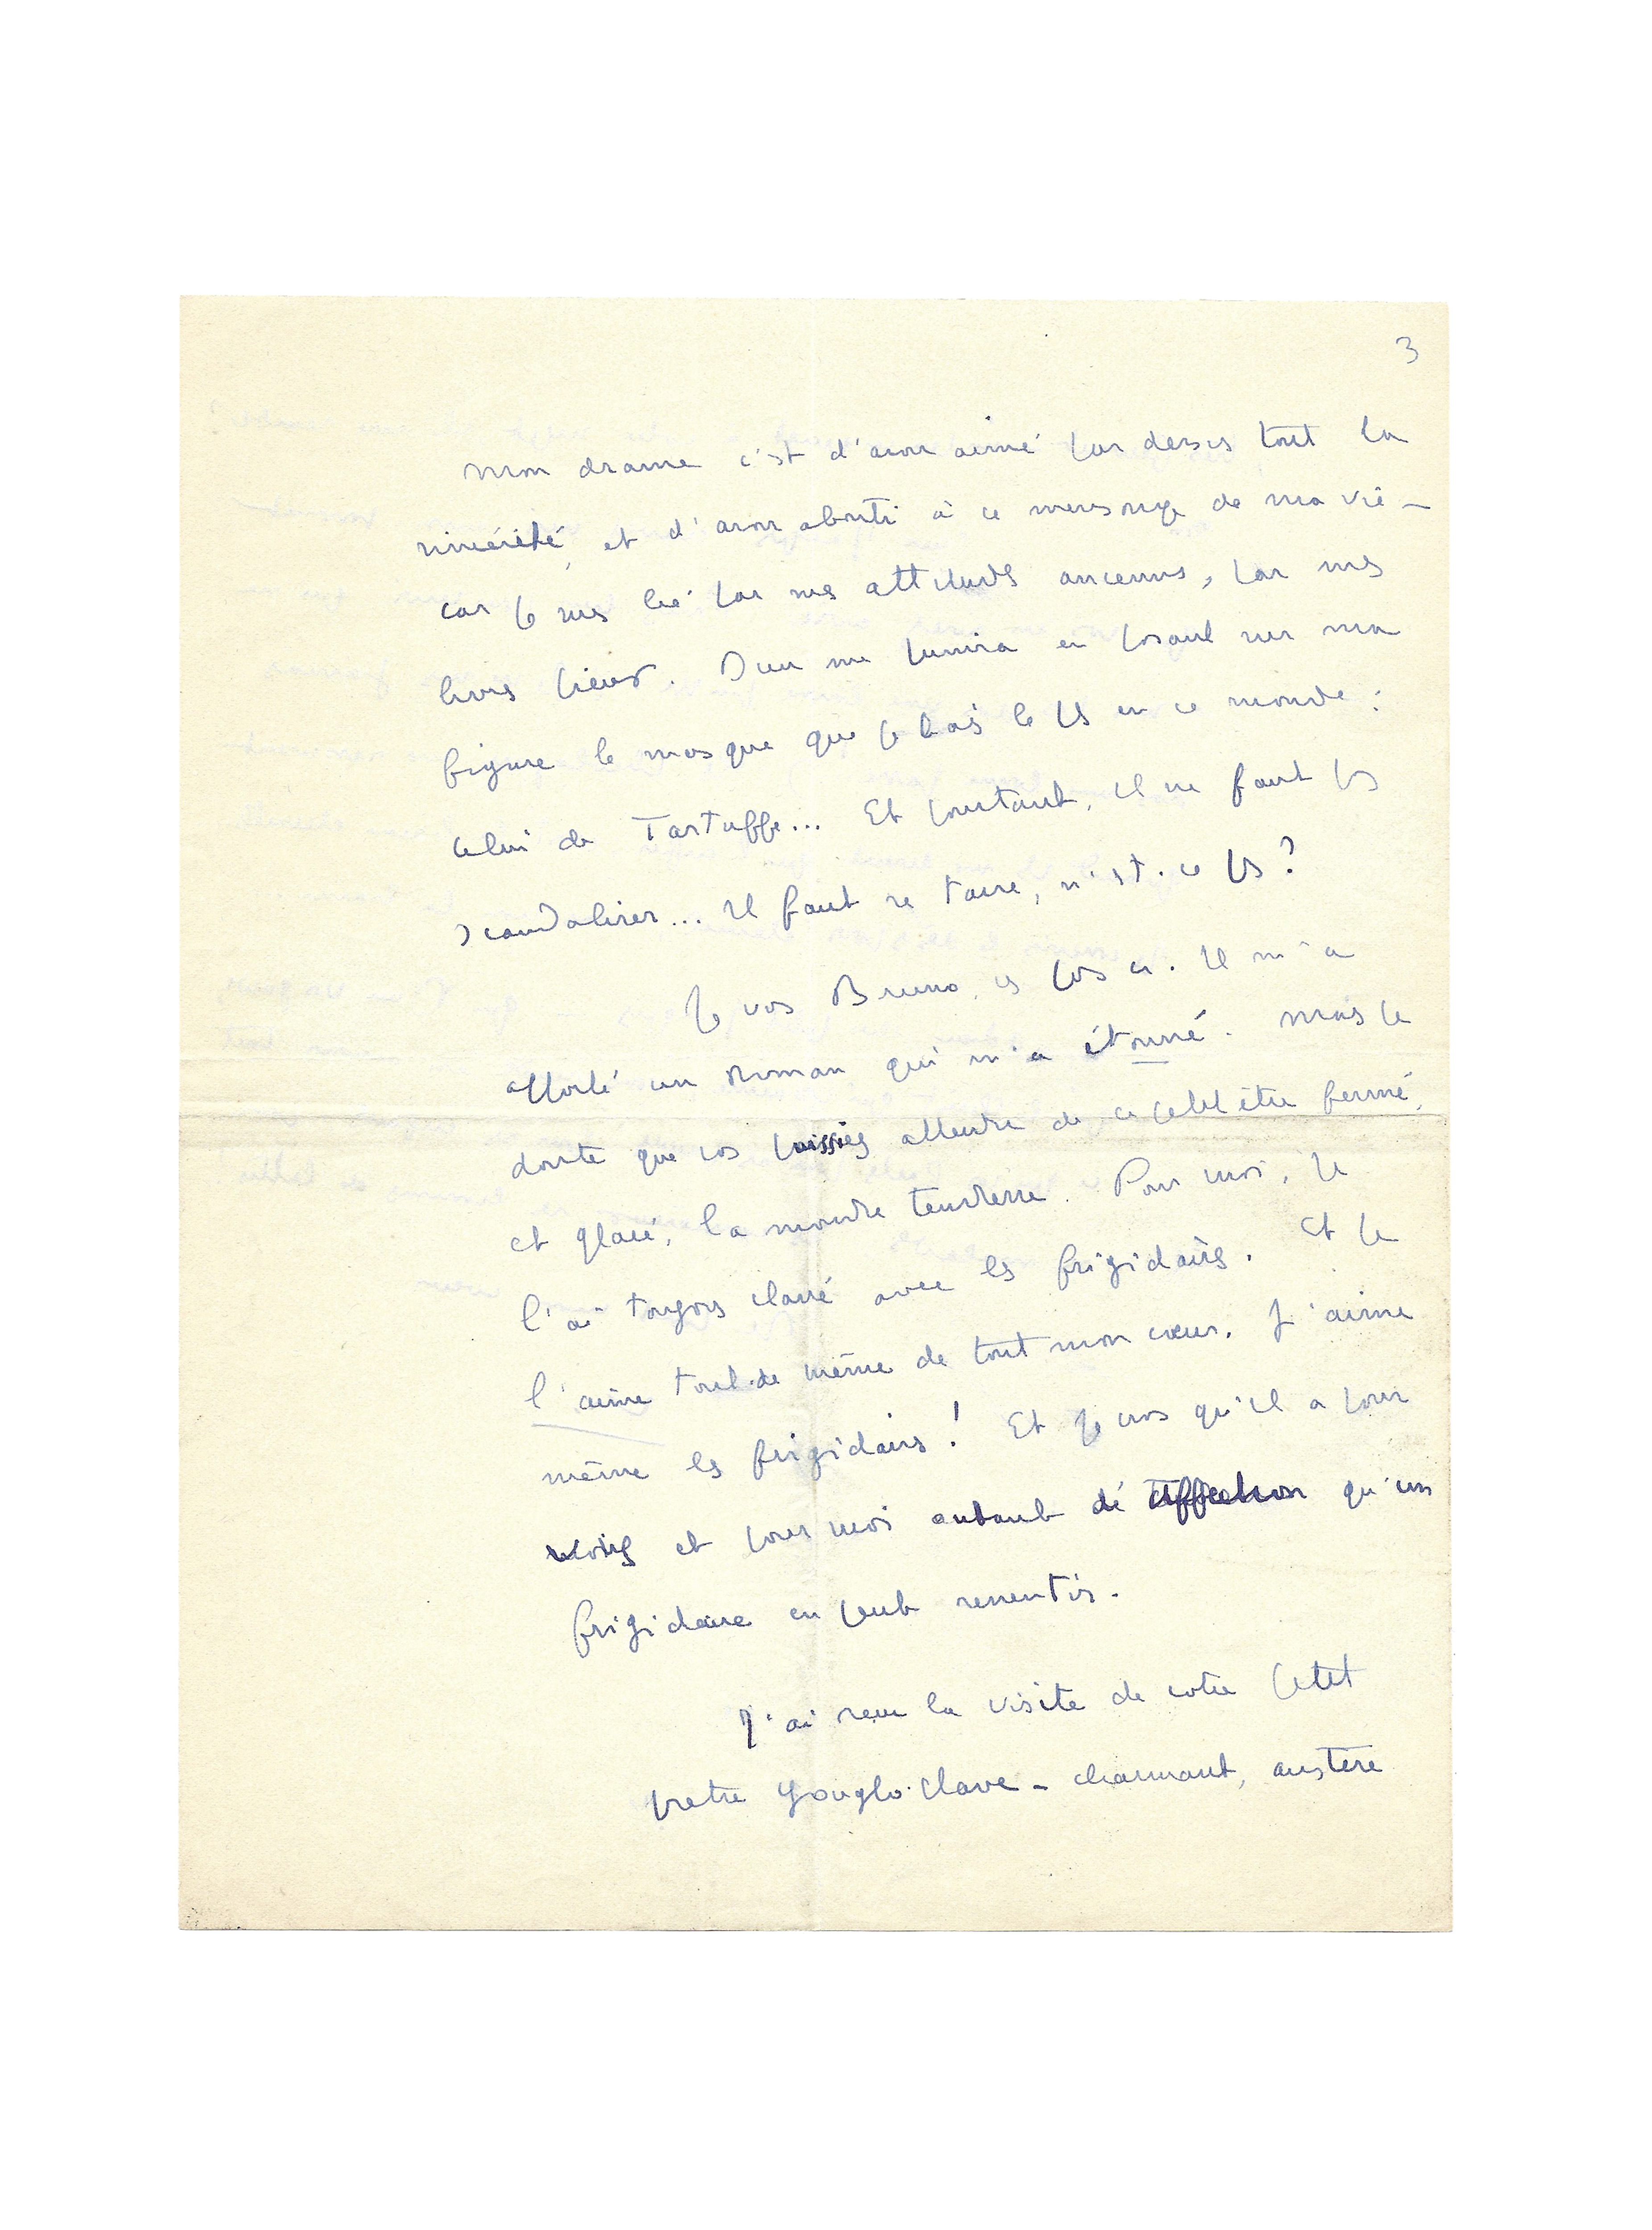 3
Mon drame c'est d'avoir aimé par dessus tout la
sincérité, et d'avoir abouti à ce mensonge de ma vie –
car je suis lié par mes attitudes anciennes, par mes
livres pieux. Dieu me punira en posant sur ma
figure le masque que je hais le plus en ce monde :
celui de Tartuffe... Et pourtant, il ne faut pas
scandaliser... Il faut se taire, n'est-ce pas ?
Je vois Bruno, ces jours ci. Il m'a
apporté un roman qui m'a étonné. Mais je
doute que vous puissiez attendre de ce petit être fermé,
et glacé, la moindre tendresse. Pour moi, je
l'ai toujours classé avec les frigidaires. Et je
l'aime tout de même de tout mon cœur. J'aime
même les frigidaires ! Et je crois qu'il a pour
vous et pour moi autant de affection qu'un
frigidaire en peut ressentir.
J'ai reçu la visite de votre petit
pretre Yougloslave – charmant, austère